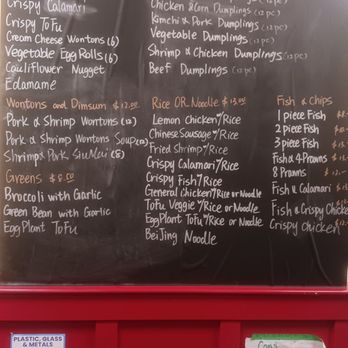 Crispy Calamari
Crispy Tofu
Cream Cheese Wontons (6)
Vegetable Egg Rolls (6)
Cauliflower Nugget
Edamame
Chicken & Corn Dumplings (12 pc)
Kimchi & Pork Dumplings (12 pc)
Vegetable Dumplings (12 pc)
Shrimp & Chicken Dumplings (12 pc)
Beef Dumplings (12 pc)
Wontons and Dimsum $12.00
Pork & Shrimp Wontons (12)
Pork & Shrimp Wontons Soup
Shrimp & Pork SiuMai (8)
Greens $8.00
Broccoli with Garlic
Green Bean with Garlic
EggPlant Tofu
Rice OR Noodle $13.00
Lemon Chicken w/Rice
Chinese Sausage w/Rice
Fried Shrimp w/Rice
Crispy Calamari w/Rice
Crispy Fish w/Rice
General Chicken w/Rice or Noodle
Tofu Veggie w/Rice or Noodle
EggPlant Tofu w/Rice or Noodle
BeiJing Noodle
Fish & Chips
1 piece Fish
2 piece Fish
3 piece Fish
Fish & 4 Prawns
8 Prawns
Fish & Calamari
Fish & Crispy Chicke
Crispy Chicken
PLASTIC, GLASS
& METALS